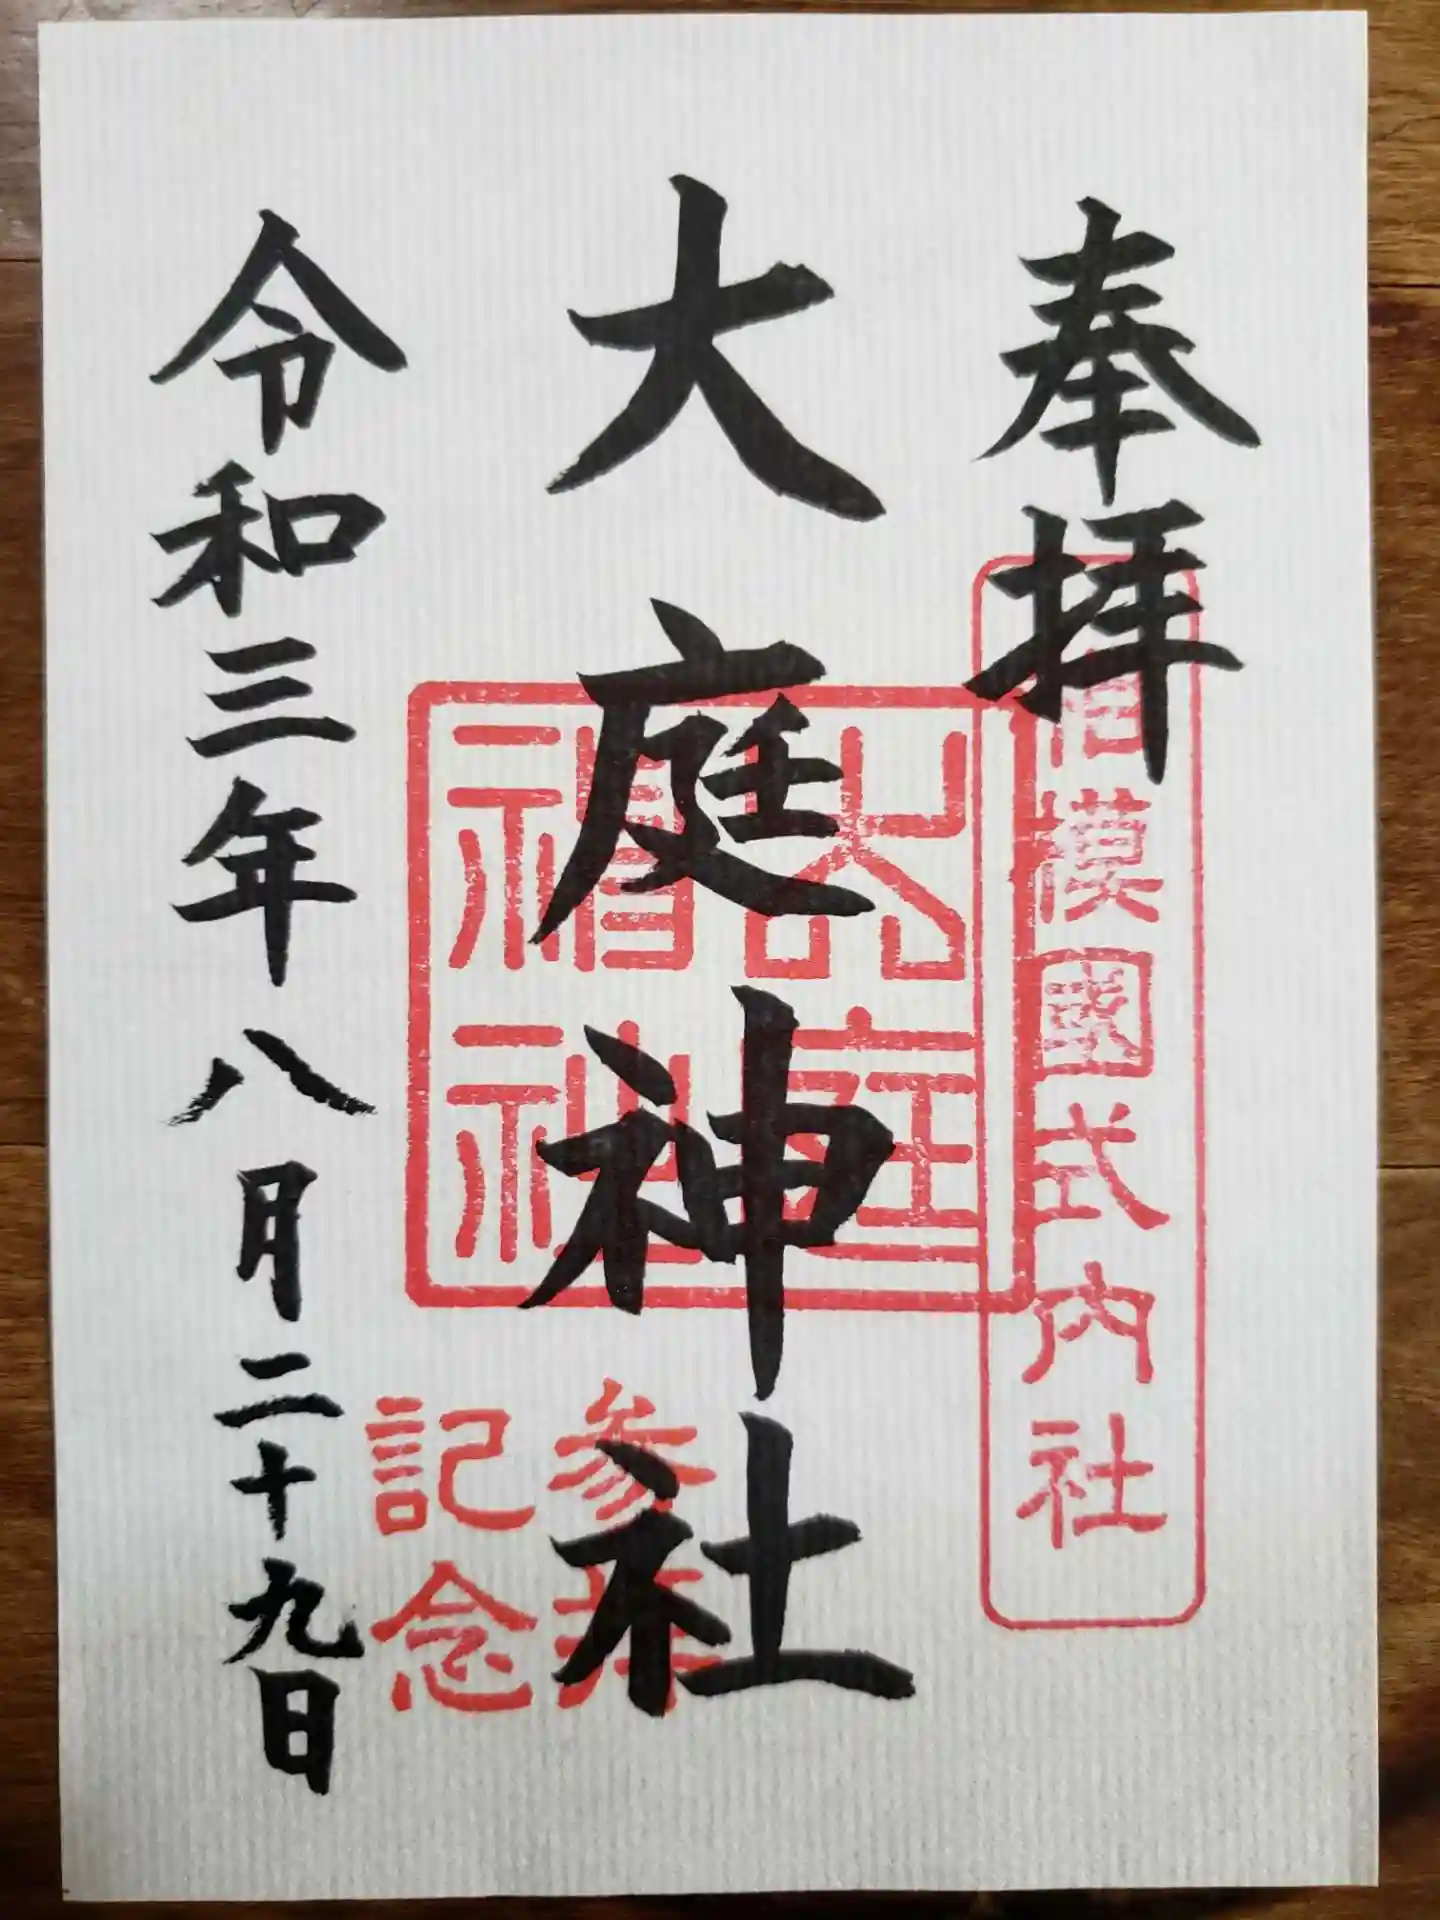 奉拝
相模國式内社
大庭神社
大庭神社
参拝
記念
令和三年八月二十九日